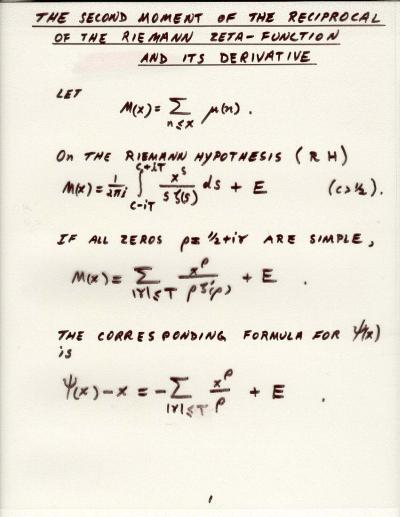 THE SECOND MOMENT OF THE RECIPROCAL
OF THE RIEMANN ZETA-FUNCTION
AND ITS DERIVATIVE
LET
M(x) = ∑_{n≤x} μ(n) .
ON THE RIEMANN HYPOTHESIS (RH)
M(x) = 1/2πi ∫_{c-iT}^{c+iT} x^s / s ζ(s) ds + E (c > 1/2).
IF ALL ZEROS ρ = 1/2 + iγ ARE SIMPLE,
M(x) = ∑_{|γ|≤T} x^ρ / ρ ζ'(ρ) + E .
THE CORRESPONDING FORMULA FOR ψ(x)
IS
ψ(x) - x = - ∑_{|γ|≤T} x^ρ / ρ + E .
1